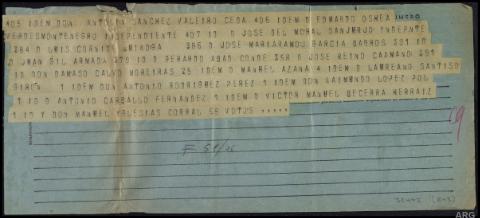 405 IDEM DON ANTOLIN SANCHEZ VALEIRO CEDA 405 IDEM D EDMARDO OSHEA
VERDESMONTENEGRO INDEPENDIENTE 407 ID D JOSE DEL MORAL SANJURJO INDEPNTE
384 D LUIS CORNIDE QUIROGA 385 D JOSE MARIARANDO GARCIA BARROS 381 ID
D JUAN GIL ARMADA 379 ID D PERARDO ABAD CONDE 358 D JOSE REINO CAAMANO 351
ID DON DAMASO CALVO MOREIRAS 25 IDEM D MANUEL AZANA 4 IDEM D LAUREANO SANTISO
GIRON 1 IDEM DON ANTONIO RODRIGUEZ PEREZ 1 IDEM DON RAIMUNDO LOPEZ POL
1 ID D ANTONIO CARBALLO FERNANDEZ 1 IDEM D VICTOR MANUEL BECERRA HERRAIZ
1 ID Y DON MANUEL YGLESIAS CORRAL 56 VOTOS
ARG